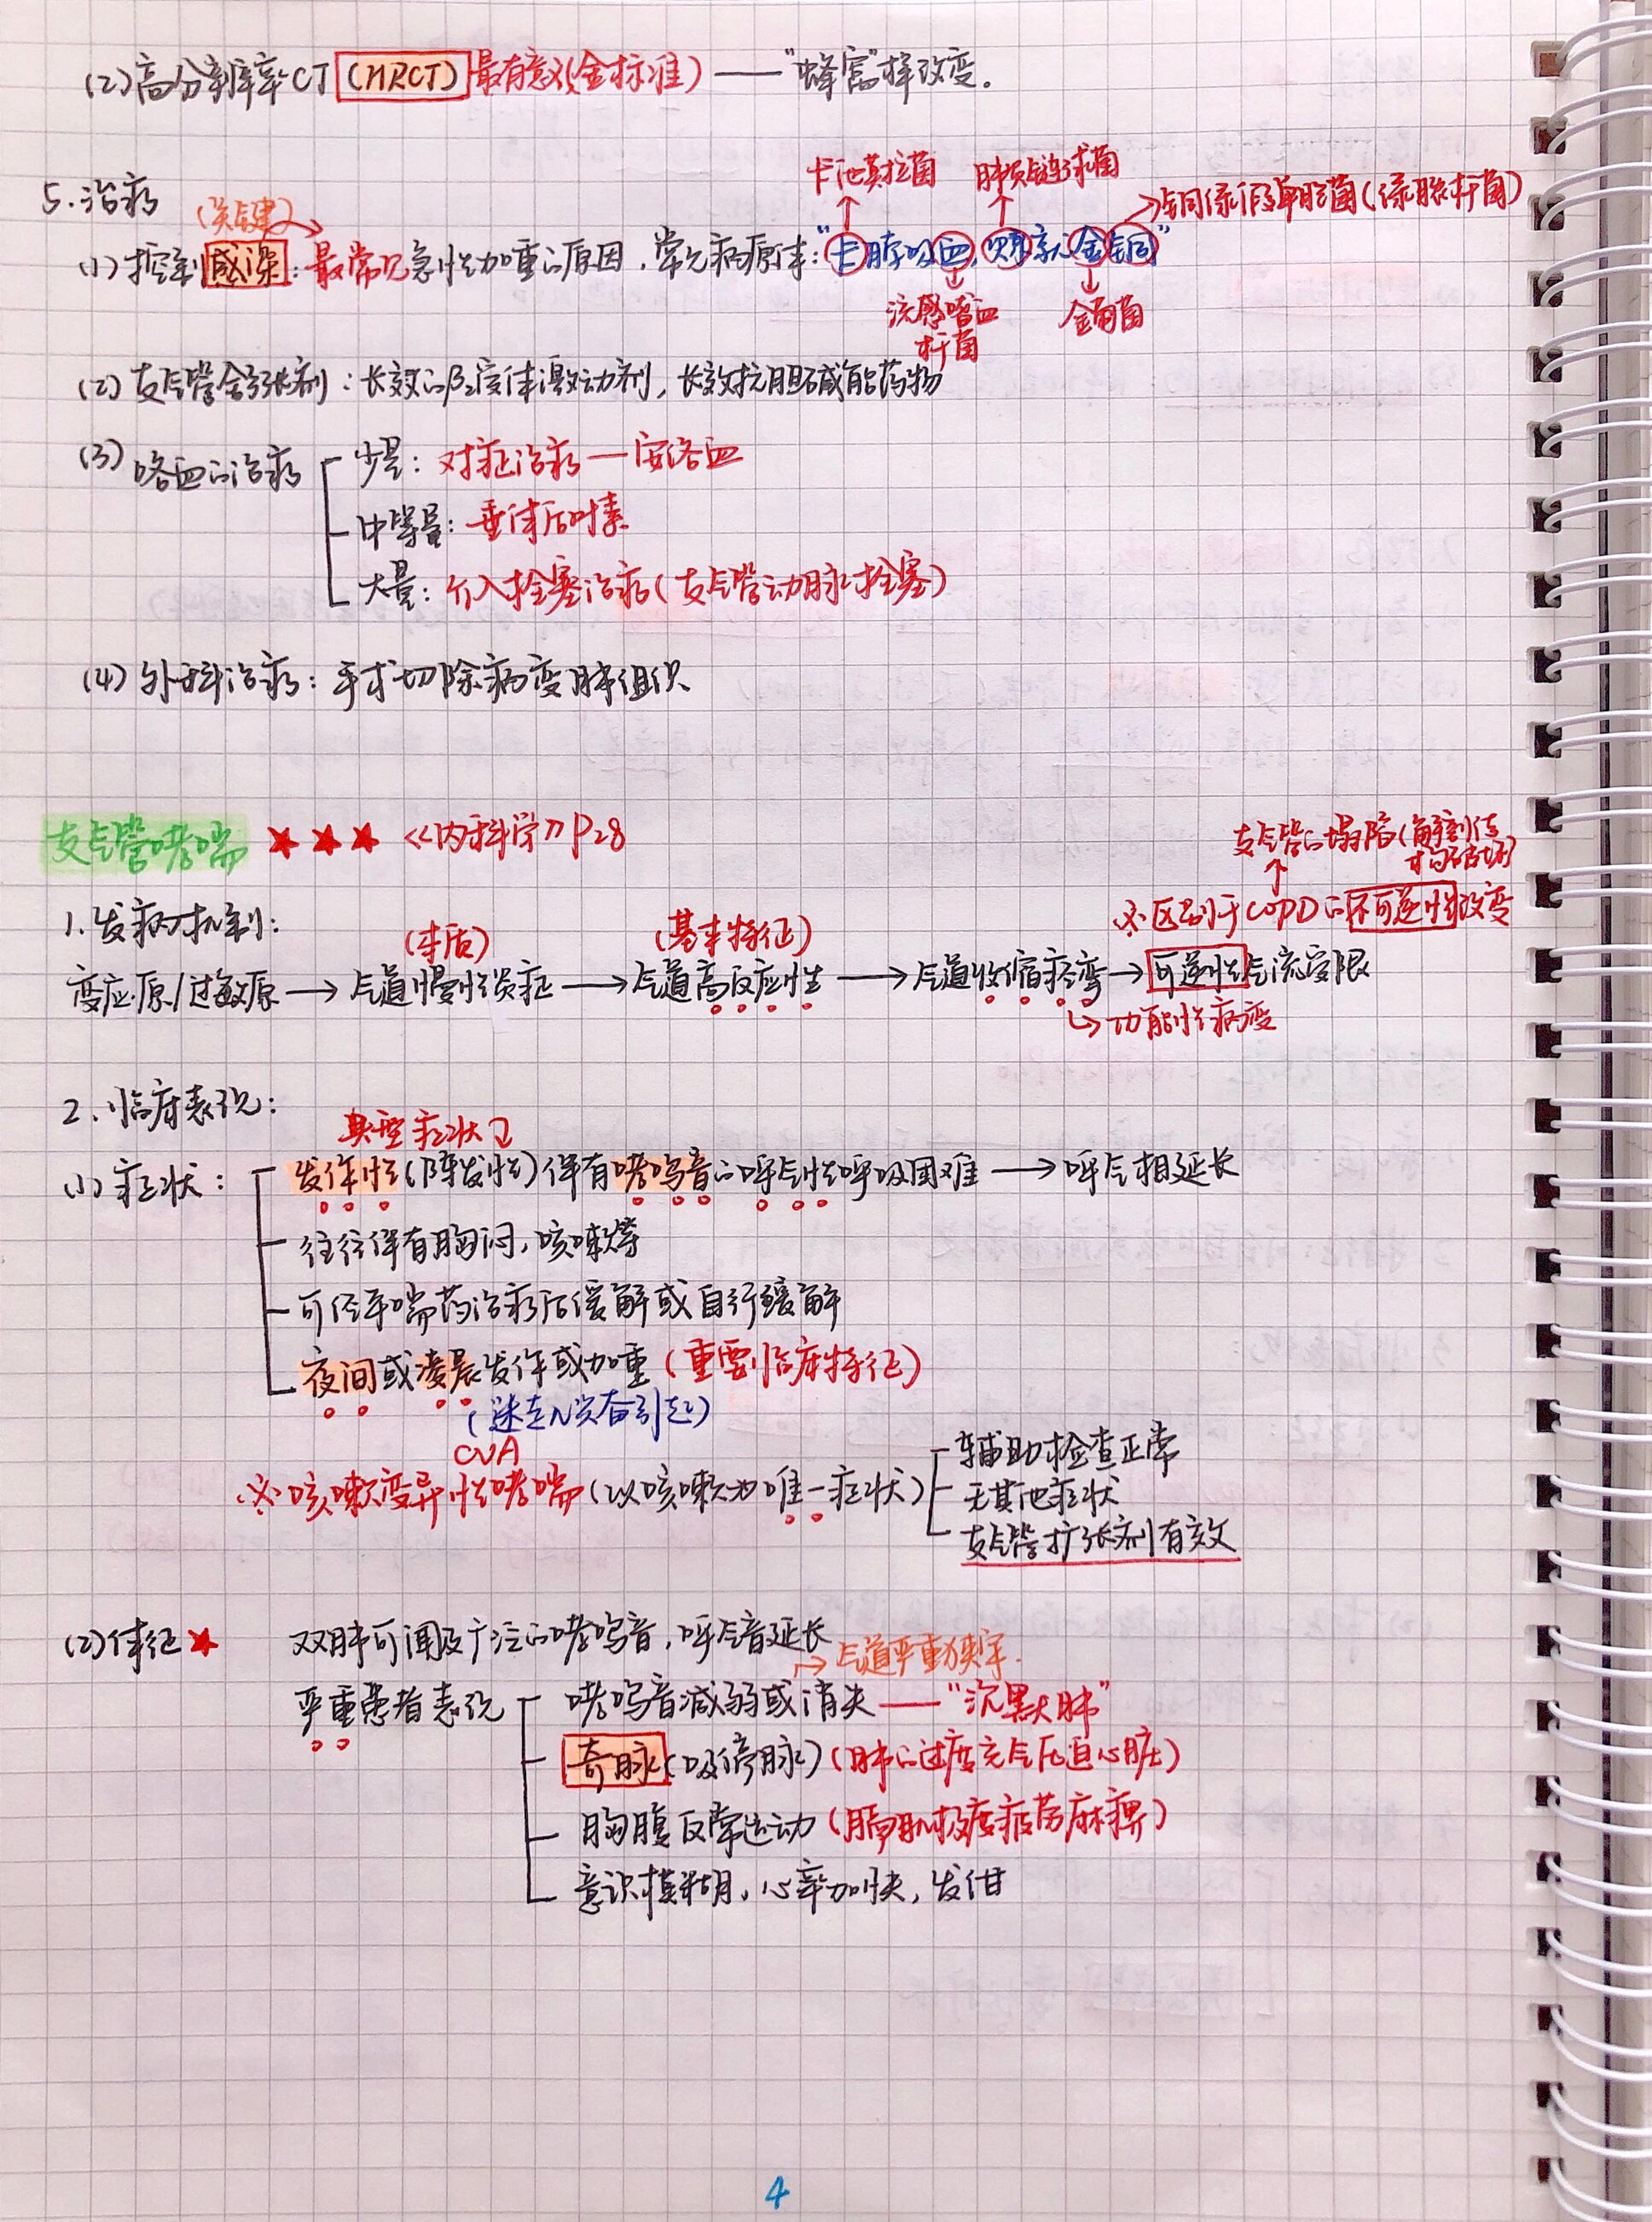 (2)高分辨率CT(HRCT)最有意义(金标准)——“蜂窝”样改变.
卡他莫拉菌 肺炎链球菌
5.治疗
(关键)
铜绿假单胞菌(绿脓杆菌)
(1)控制感染:最常见急性加重的原因,常见病原体:“卡脖吸血,炎症金铜”
流感嗜血杆菌 金葡菌
(2)支气管舒张剂:长效的β2受体激动剂,长效抗胆碱能药物
(3)咯血的治疗
少量:对症治疗—安络血
中等量:垂体后叶素
大量:介入栓塞治疗(支气管动脉栓塞)
(4)外科治疗:手术切除病变肺组织
支气管哮喘★★★《内科学》P28
支气管的塌陷(解剖结构破坏)
1.发病机制:
※区别于COPD的不可逆性改变
(本质) (基本特征)
变应原/过敏原→气道慢性炎症→气道高反应性→气道收缩痉挛→可逆性气流受限
功能性病变
2.临床表现:
典型症状
(1)症状:
发作性(阵发性)伴有哮鸣音的呼气性呼吸困难→呼气相延长
往往伴有胸闷,咳嗽等
可经平喘药治疗后缓解或自行缓解
夜间或凌晨发作或加重(重要临床特征)
(迷走N兴奋引起)
CVA
※咳嗽变异性哮喘(以咳嗽为唯一症状)
辅助检查正常
无其他症状
支气管扩张剂有效
(2)体征★ 双肺可闻及广泛的哮鸣音,呼气音延长
→气道严重狭窄.
严重患者表现
哮鸣音减弱或消失——“沉默肺”
奇脉(吸停脉)(肺的过度充气压迫心脏)
胸腹反常运动(膈肌极度疲劳麻痹)
意识模糊,心率加快,发绀
4